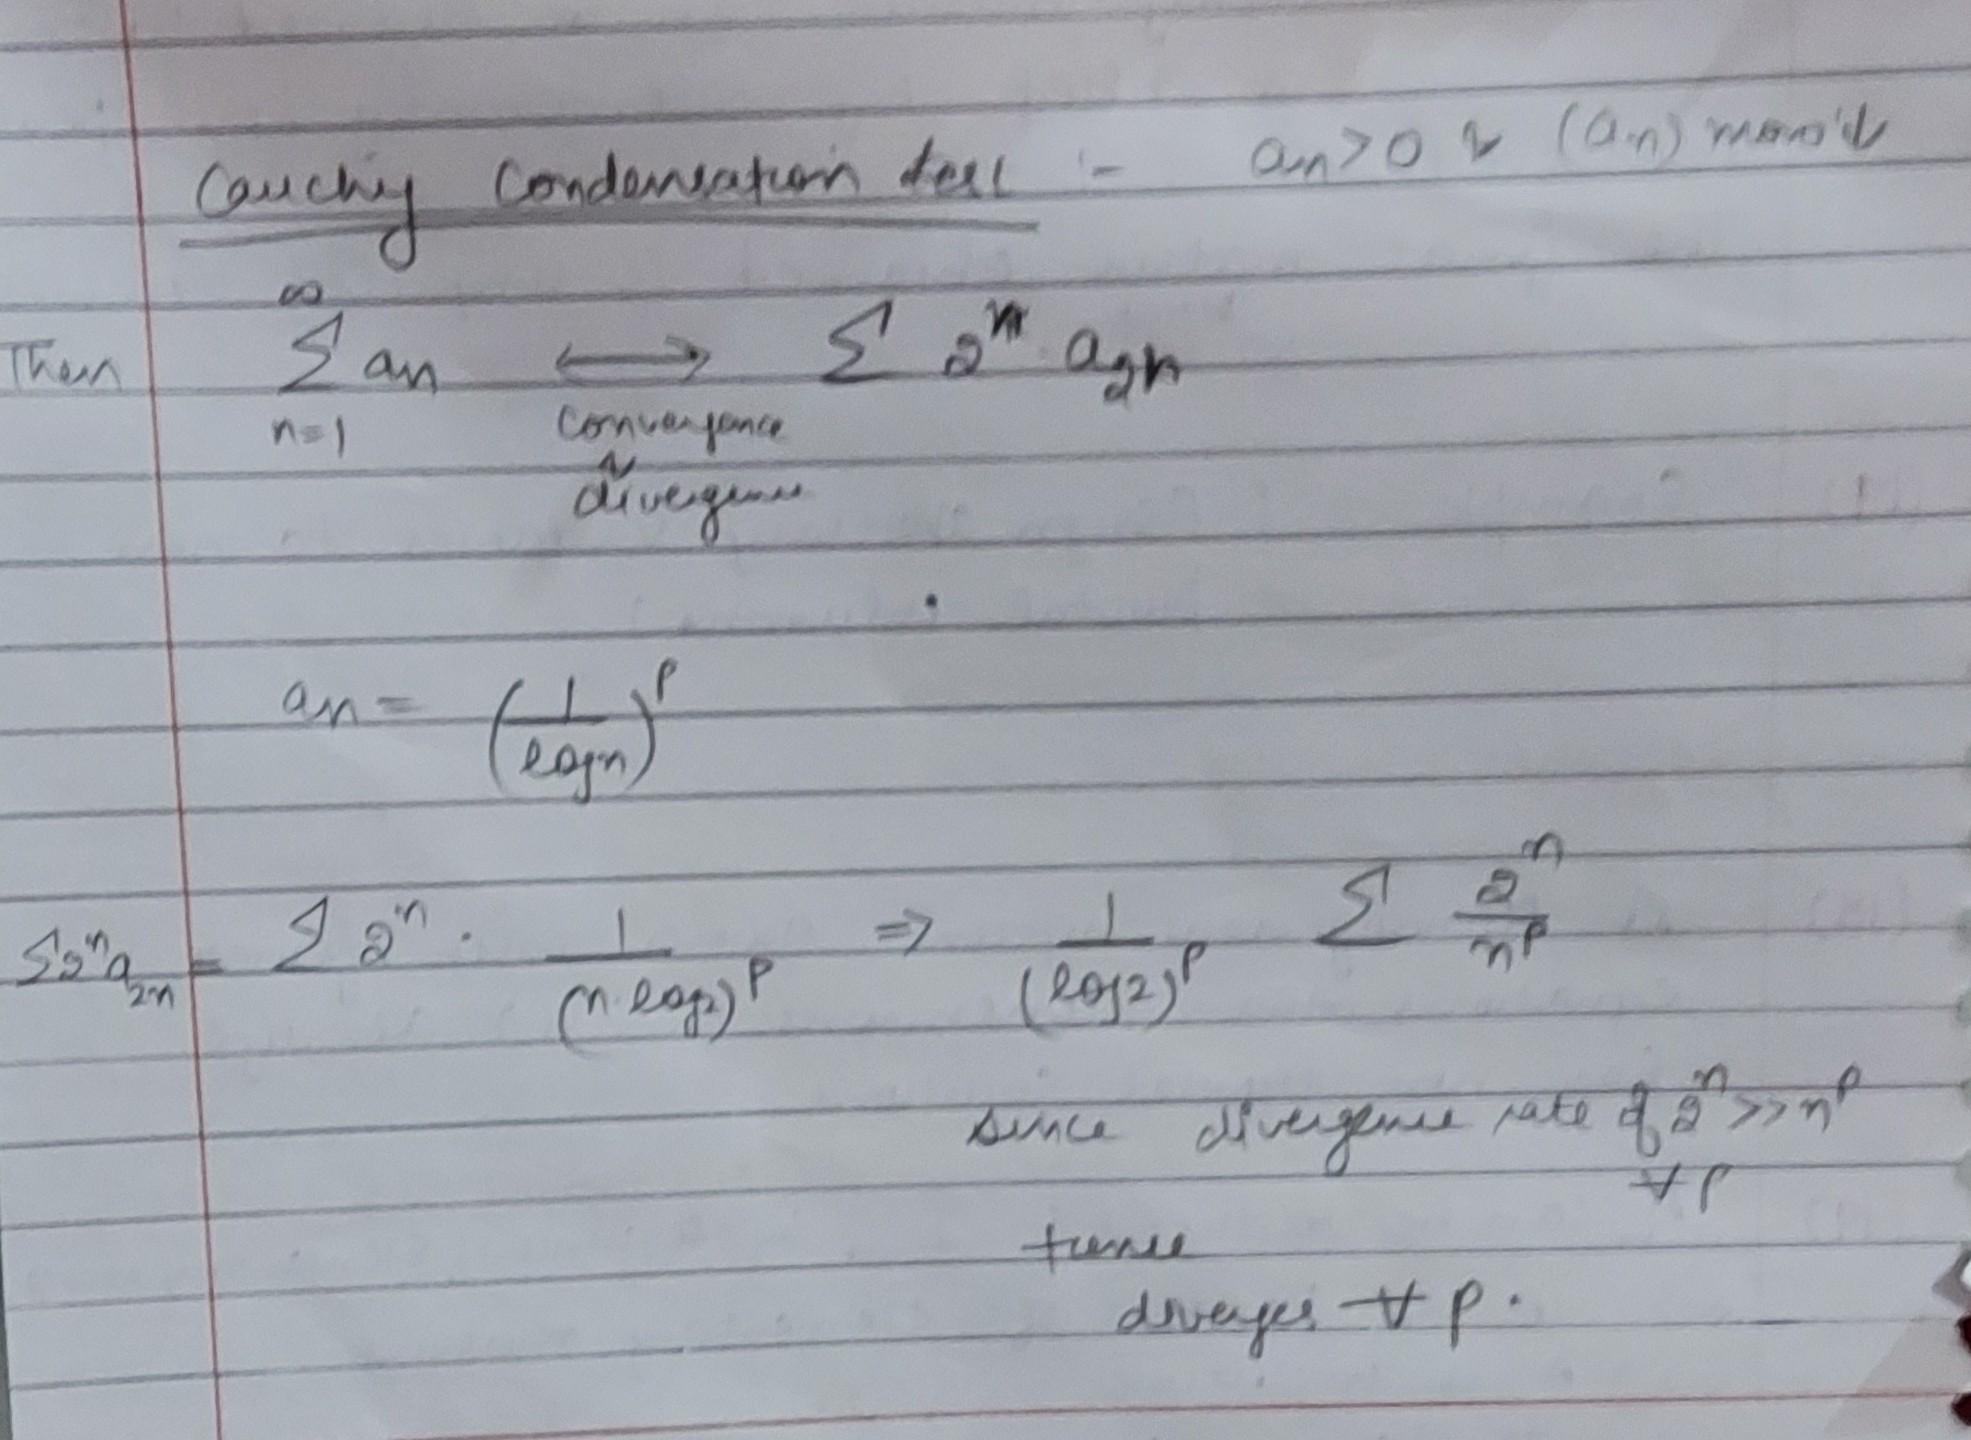 Cauchy Condensation test :- an>0 & (an) mono↓
Then ∞∑n=1 an ⟷ ∑ 2^n a_2^n
Convergence
&
divergence
an = (1/logn)^p
∑2^n a_2^n = ∑ 2^n · 1/(n·log2)^p ⇒ 1/(log2)^p ∑ 2^n/n^p
since divergence rate of 2^n >> n^p
∀ p
Hence
diverges ∀ p.